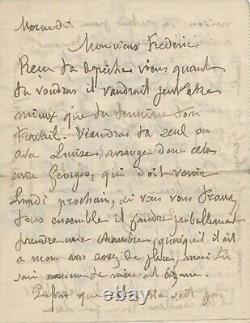 Mercredi
Monsieur Frederic
Reçu ta dépêche viens quand
tu voudras il vaudrait peut être
mieux que tu termine ton
travail. Viendras tu seul ou
avec Louise, arrange donc cela
avec Georges, qui doit venir
Lundi prochain, si vous vous trouvez
tous ensemble il faudra probablement
prendre une chambre, quoiqu'il ait
a mon avis assez de place, mais tu
sais comme
Enfin que